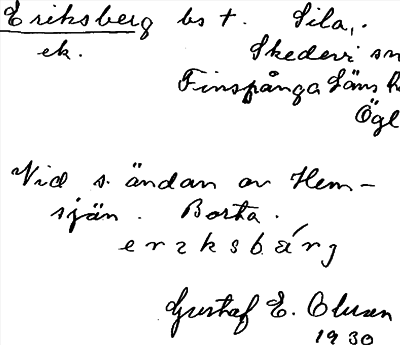 Eriksberg bs t. Sila,.
ek. Skedevi sn
Finspånga Läns h
Ögl
Vid s. ändan av Hem-
sjön. Borta.
erzksbärg
Gustaf E. Olsson
1930